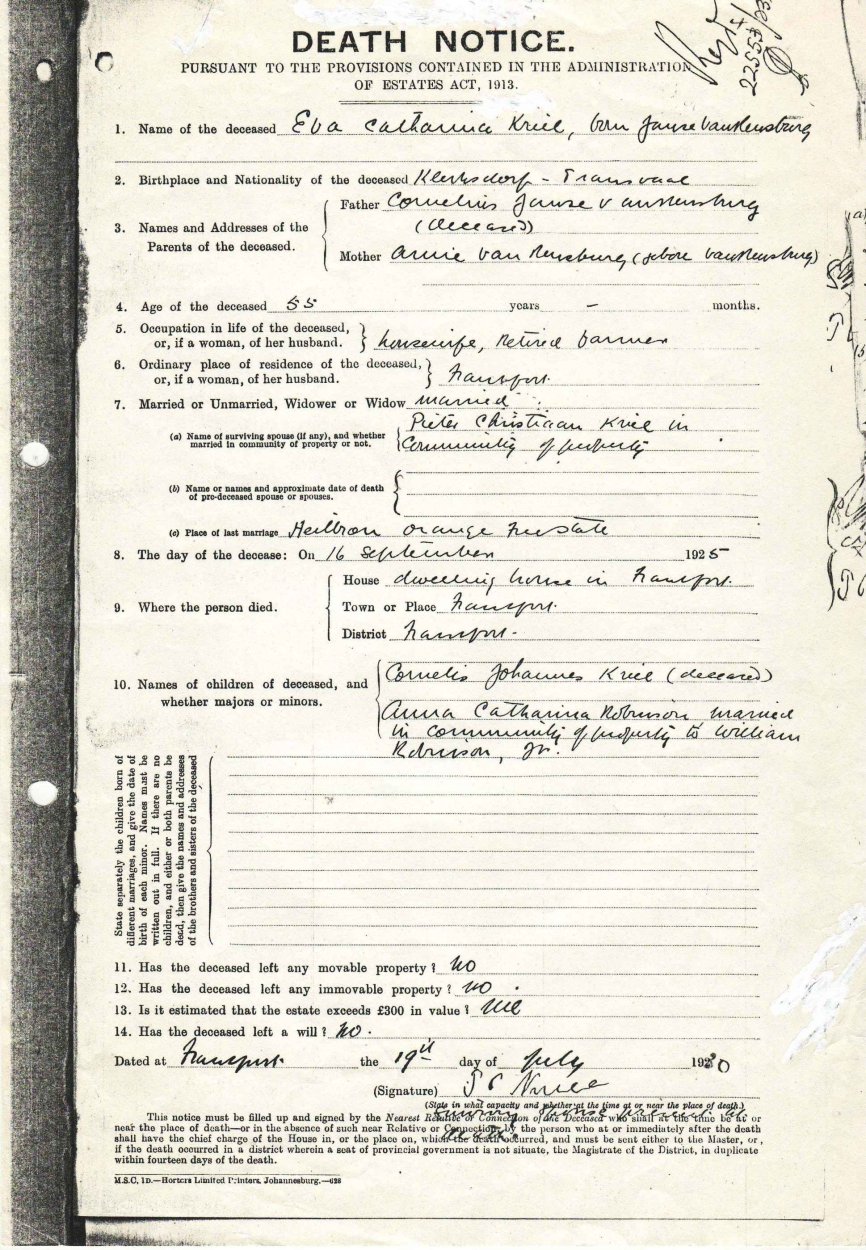 DEATH NOTICE.
PURSUANT TO THE PROVISIONS CONTAINED IN THE ADMINISTRATION
OF ESTATES ACT, 1913.
22553/
1. Name of the deceased Eva Catharina Kriel, born Janse VanRensburg
2. Birthplace and Nationality of the deceased Klerksdorp - Transvaal
3. Names and Addresses of the Parents of the deceased.
Father Cornelius Janse VanRensburg
(deceased)
Mother Annie Van Rensburg (gebore VanRensburg)
4. Age of the deceased 55 years - months.
5. Occupation in life of the deceased,
or, if a woman, of her husband. housewife, Retired farmer
6. Ordinary place of residence of the deceased,
or, if a woman, of her husband.
7. Married or Unmarried, Widower or Widow married.
(a) Name of surviving spouse (if any), and whether
married in community of property or not.
Pieter Christiaan Kriel in
Community of property
(b) Name or names and approximate date of death
of pre-deceased spouse or spouses.
(c) Place of last marriage Heilbron Orange Free State
8. The day of the decease: On 16 September 1925
9. Where the person died.
House dwelling house in
Town or Place
District
10. Names of children of deceased, and
whether majors or minors.
Cornelis Johannes Kriel (deceased)
Anna Catharina Robinson, married
in community of property to William
Robinson, Jr.
State separately the children born of
different marriages, and give the date of
birth of each minor. Names must be
written out in full. If there are no
children, and either or both parents be
dead, then give the names and addresses
of the brothers and sisters of the deceased
11. Has the deceased left any movable property? No
12. Has the deceased left any immovable property? No.
13. Is it estimated that the estate exceeds £300 in value? Nil
14. Has the deceased left a will? No.
Dated at the 19th day of July 1930
(Signature)
(State in what capacity and whether at the time at or near the place of death.)
Surviving spouse present at
This notice must be filled up and signed by the Nearest Relative or Connection of the Deceased who shall at the time be at or
near the place of death—or in the absence of such near Relative or Connection, by the person who at or immediately after the death
shall have the chief charge of the House in, or the place on, which the death occurred, and must be sent either to the Master, or,
if the death occurred in a district wherein a seat of provincial government is not situate, the Magistrate of the District, in duplicate
within fourteen days of the death.
M.S.C. 1D.—Horters Limited Printers, Johannesburg.—628